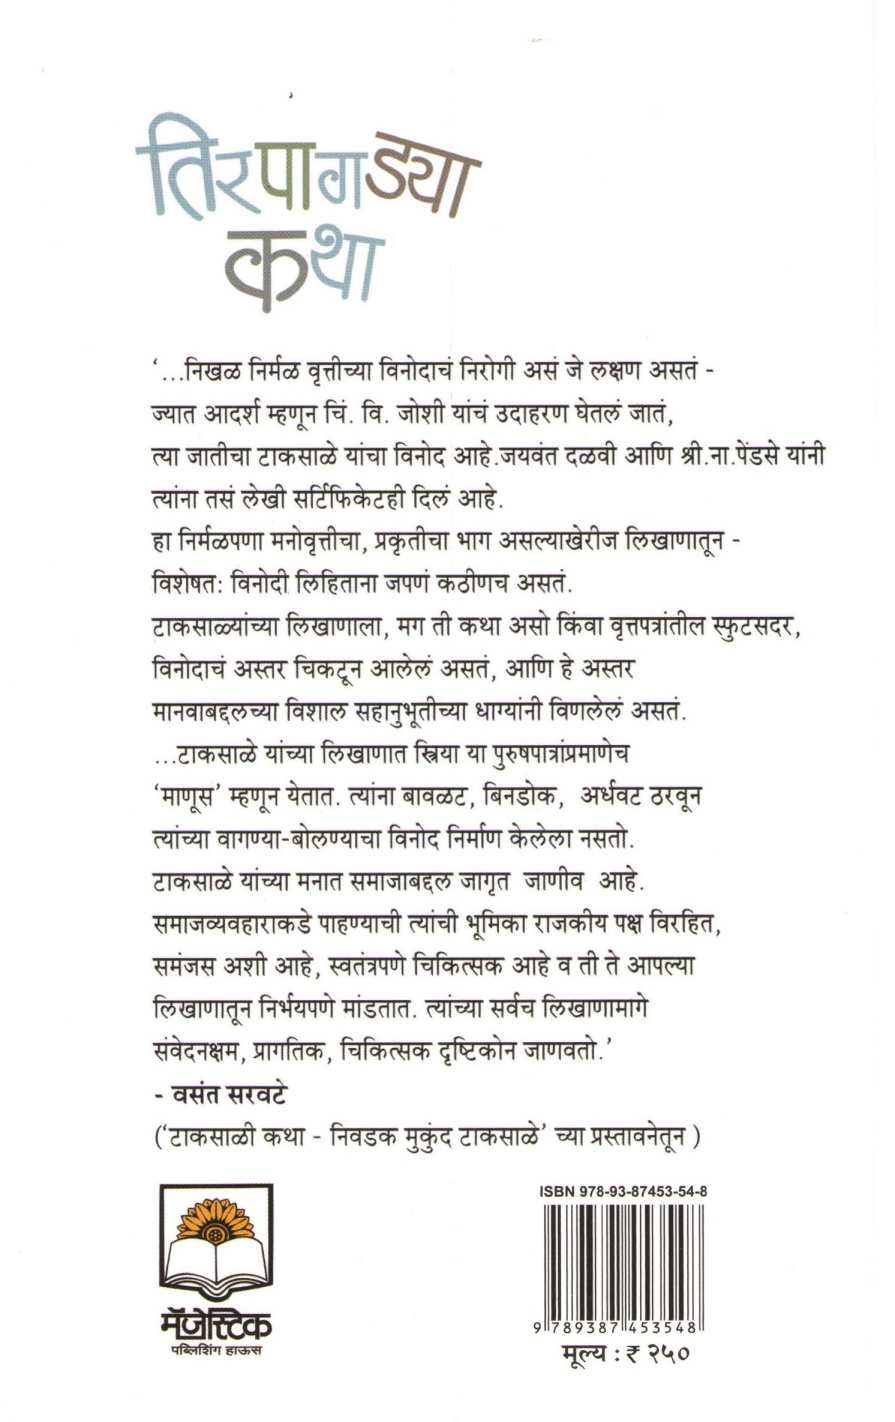 तिरपागड्या
कथा
‘...निखळ निर्मळ वृत्तीच्या विनोदाचं निरोगी असं जे लक्षण असतं -
ज्यात आदर्श म्हणून चिं. वि. जोशी यांचं उदाहरण घेतलं जातं,
त्या जातीचा टाकसाळे यांचा विनोद आहे.जयवंत दळवी आणि श्री.ना.पेंडसे यांनी
त्यांना तसं लेखी सर्टिफिकेटही दिलं आहे.
हा निर्मळपणा मनोवृत्तीचा, प्रकृतीचा भाग असल्याखेरीज लिखाणातून -
विशेषतः विनोदी लिहिताना जपणं कठीणच असतं.
टाकसाळ्यांच्या लिखाणाला, मग ती कथा असो किंवा वृत्तपत्रांतील स्फुटसदर,
विनोदाचं अस्तर चिकटून आलेलं असतं, आणि हे अस्तर
मानवाबद्दलच्या विशाल सहानुभूतीच्या धाग्यांनी विणलेलं असतं.
...टाकसाळे यांच्या लिखाणात स्त्रिया या पुरुषपात्रांप्रमाणेच
‘माणूस’ म्हणून येतात. त्यांना बावळट, बिनडोक, अर्धवट ठरवून
त्यांच्या वागण्या-बोलण्याचा विनोद निर्माण केलेला नसतो.
टाकसाळे यांच्या मनात समाजाबद्दल जागृत जाणीव आहे.
समाजव्यवहाराकडे पाहण्याची त्यांची भूमिका राजकीय पक्ष विरहित,
समंजस अशी आहे, स्वतंत्रपणे चिकित्सक आहे व ती ते आपल्या
लिखाणातून निर्भयपणे मांडतात. त्यांच्या सर्वच लिखाणामागे
संवेदनक्षम, प्रागतिक, चिकित्सक दृष्टिकोन जाणवतो.’
- वसंत सरवटे
(‘टाकसाळी कथा - निवडक मुकुंद टाकसाळे’ च्या प्रस्तावनेतून )
ISBN 978-93-87453-54-8
9 789387 453548
मूल्य : ₹ २५०
मॅजेस्टिक
पब्लिशिंग हाऊस